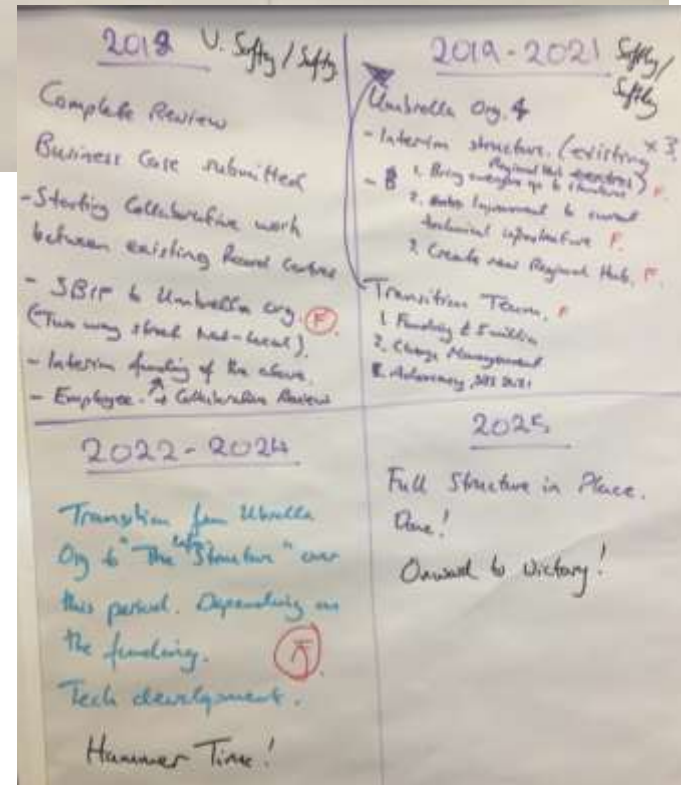 2018 V. Softly / Softly
Complete Review
Business Case submitted
- Starting Collaborative work
between existing Record Centres
- SBIF to Umbrella org. F
(Two way street Nat-local).
- Interim funding of the above.
- Employee. → Collaborative Review
2019 - 2021 Softly /
Softly
Umbrella Org.
- Interim structure. (existing × 3
Regional
1. Bring up to F.
2. Improvement to current
technical infrastructure F.
3 Create new Regional Hub. F.
Transition Team. F
1. Funding £ 5 million
2. Change Management
2022 - 2024
Transition from Ubrella
Org to "The Structure" over
this period. Depending on
the funding. F
Tech development.
Hammer Time!
2025
Full Structure in Place.
Done!
Onward to Victory!